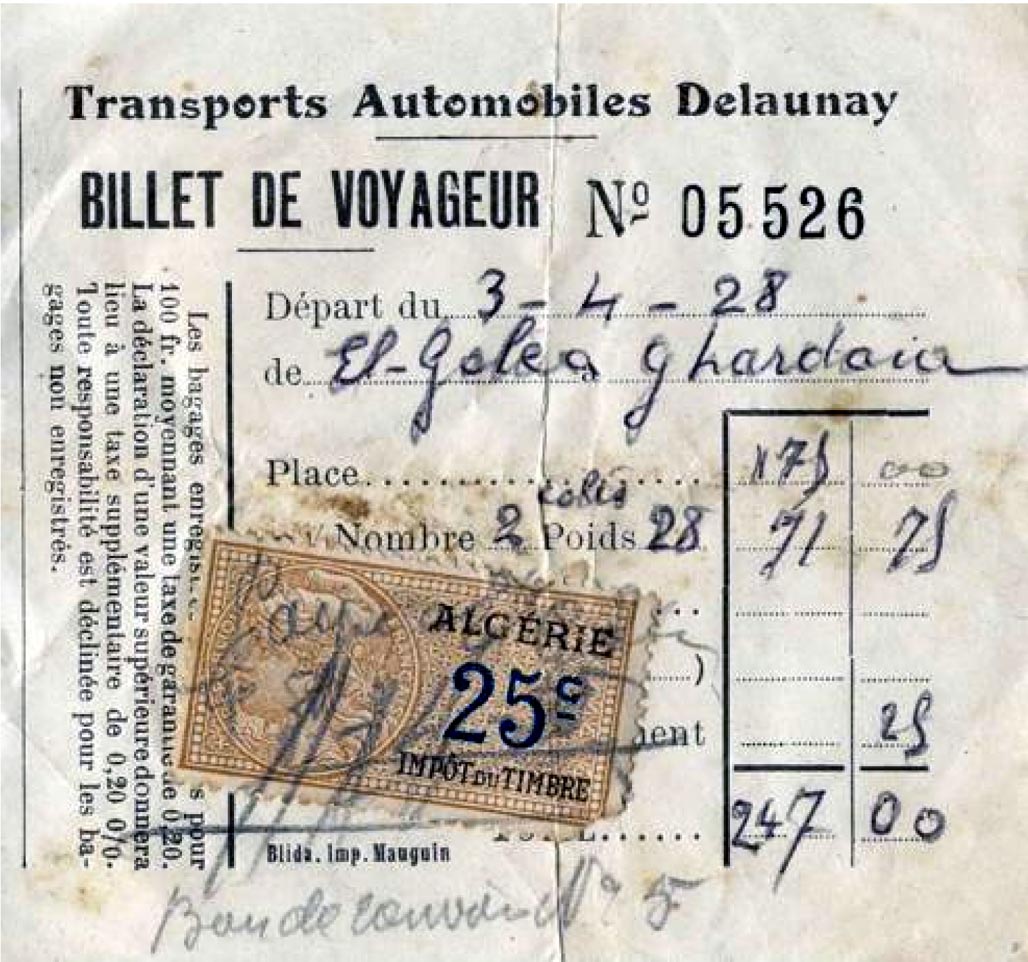 Transports Automobiles Delaunay
BILLET DE VOYAGEUR Nº 05526
Départ du 3 - 4 - 28
de El-Goléa à Ghardaia
Place 175 00
Nombre 2 colis Poids 28 71 75
)
ment 25
247 00
Blida. Imp. Mauguin
ALGÉRIE
25c
IMPÔT DU TIMBRE
Les bagages enregis s pour
100 fr. moyennant une taxe de garantie de 0,20.
La déclaration d'une valeur supérieure donnera
lieu à une taxe supplémentaire de 0,20 0/0.
Toute responsabilité est déclinée pour les ba-
gages non enregistrés.
Bon de convoi Nº 5